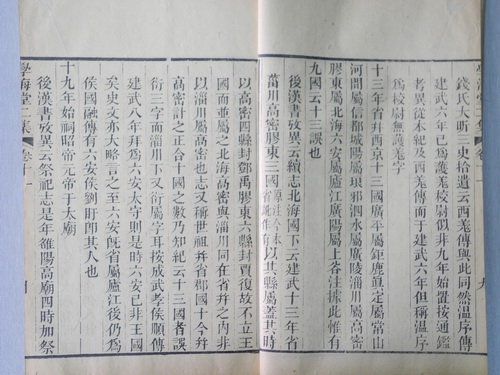 錢氏大昕三史拾遺云西羌傳與此同然溫序傳
建武六年已為護羌校尉似非九年始置按通鑑
考異從本紀及西羌傳而于建武六年但稱溫序
為校尉無護羌字
十三年省并西京十三國廣平屬鉅鹿真定屬常山
河間屬信都城陽屬琅邪泗水屬廣陵淄川屬高密
膠東屬北海六安屬廬江廣陽屬上谷注據此惟有
九國云十三誤也
後漢書攷異云續志北海國下云建武十三年省
菑川高密膠東三國以其縣屬蓋其時
高密四縣封鄧禹膠東六縣封賈復故不立王
國而並屬之北海高密與淄川同在省并之內非
以淄川屬高密也志又稱世祖并省郡國十今并
高密計之正合十國之數乃知紀云十三國者誤
衍三字而淄川下又衍屬字耳按成武孝侯順傳
建武八年拜為六安太守則是時六安已非王國
矣史文亦大略言之至六安旣省屬廬江後仍為
侯國融傳有六安侯劉盱卽其人也
十九年始祠昭帝元帝于太廟
後漢書攷異云祭祀志是年雒陽高廟四時加祭
學海堂二集 卷十一